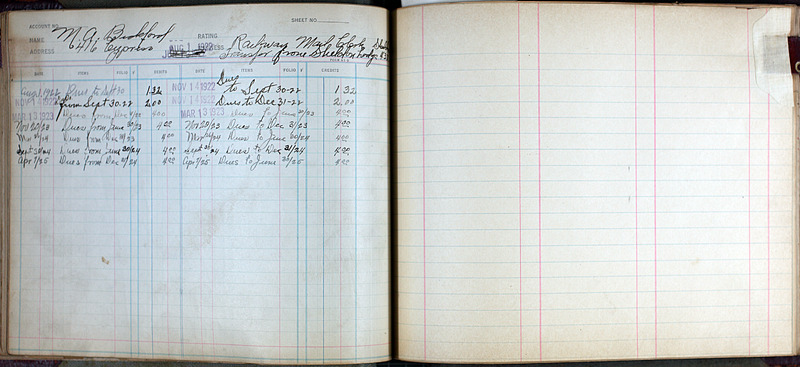 SHEET NO.
ACCOUNT NO.
NAME M. A. Bickford RATING
ADDRESS 416 Cypress AUG 1 1922 ADDRESS Railway Mail Clerk
Transfer from Lodge
DATE ITEMS FOLIO √ DEBITS DATE ITEMS FOLIO √ CREDITS
Aug 1, 1922 Dues to Sept 30 1 32 NOV 14 1922 Dues to Sept 30-22 1 32
NOV 14 1922 from Sept 30-22 2 00 NOV 14 1922 Dues to Dec 31-22 2 00
MAR 13 1923 Dues from Dec 4 00 MAR 13 1923 Dues to June 30/23 4 00
Nov 20/23 Dues from June 30/23 4 00 Nov 20/23 Dues to Dec 31/23 4 00
Dues from Dec 31/23 4 00 Dues to June 30/24 4 00
Sept 30/24 Dues from June 30/24 4 00 Sept 30/24 Dues to Dec 31/24 4 00
Apr 7/25 Dues from Dec 31/24 4 00 Apr 7/25 Dues to June 30/25 4 00